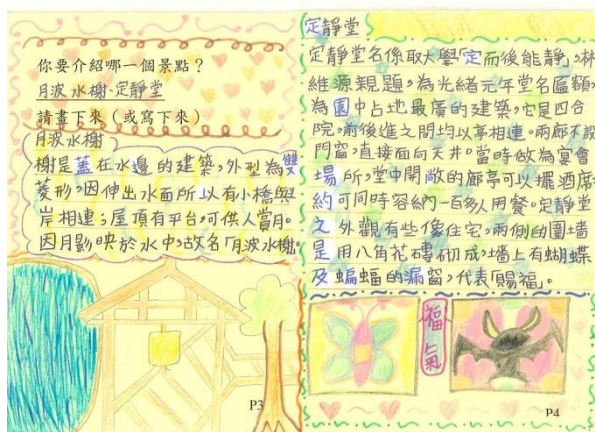 你要介紹哪一個景點？
月波水榭、定靜堂
請畫下來（或寫下來）
月波水榭
榭是蓋在水邊的建築，外型為雙
菱形，因伸出水面所以有小橋與
岸相連；屋頂有平台，可供人賞月。
因月影映於水中，故名「月波水榭」。
P3
定靜堂
定靜堂名係取大學「定而後能靜」，林
維源親題，為光緒元年堂名匾額，
為園中占地最廣的建築，它是四合
院，前後進之間均以亭相連。兩廊不設
門窗，直接面向天井。當時做為宴會
場所，堂中開敞的廊亭可以擺酒席，
約可同時容納一百多人用餐。定靜堂
之外觀有些像住宅，兩側的圍墻
是用八角花磚砌成，墻上有蝴蝶
及蝙蝠的漏窗，代表「賜福」。
福氣
P4